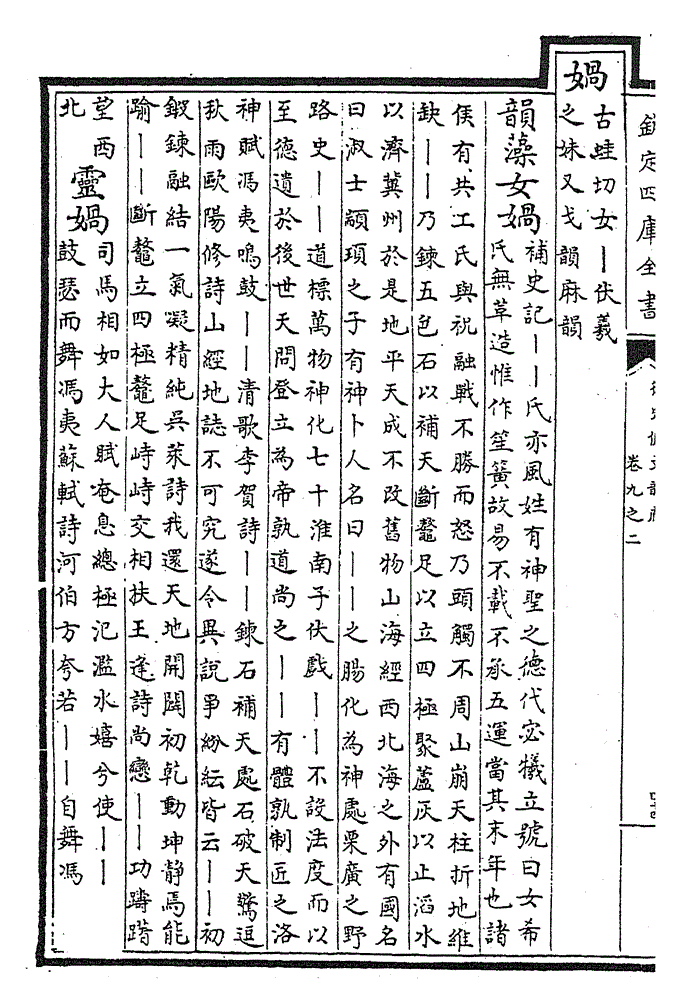 欽定四庫全書
卷九之二
媧
古蛙切女丨伏羲
之妹又戈韻麻韻
韻藻女媧
補史記丨丨氏亦風姓有神聖之德代宓犧立號曰女希
氏無草造惟作笙簧故易不載不承五運當其末年也諸
侯有共工氏與祝融戰不勝而怒乃頭觸不周山崩天柱折地維
缺丨丨乃鍊五色石以補天斷鼇足以立四極聚蘆灰以止滔水
以濟冀州於是地平天成不改舊物山海經西北海之外有國名
曰淑士顓頊之子有神卜人名曰丨丨之腸化為神處栗廣之野
路史丨丨道標萬物神化七十淮南子伏戲丨丨不設法度而以
至德遺於後世天問登立為帝孰道尚之丨丨有體孰制匠之洛
神賦馮夷鳴鼓丨丨清歌李賀詩丨丨鍊石補天處石破天驚逗
秋雨歐陽修詩山經地誌不可究遂令異說爭紛紜皆云丨丨初
鍛鍊融結一氣凝精純吳萊詩我還天地開闢初乾動坤静焉能
踰丨丨斷鼇立四極鼇足峙峙交相扶王逢詩尚戀丨丨功躊躇
望西
北
靈媧
司馬相如大人賦奄息總極氾濫水嬉兮使丨丨
鼓瑟而舞馮夷蘇軾詩河伯方夸若丨丨自舞馮